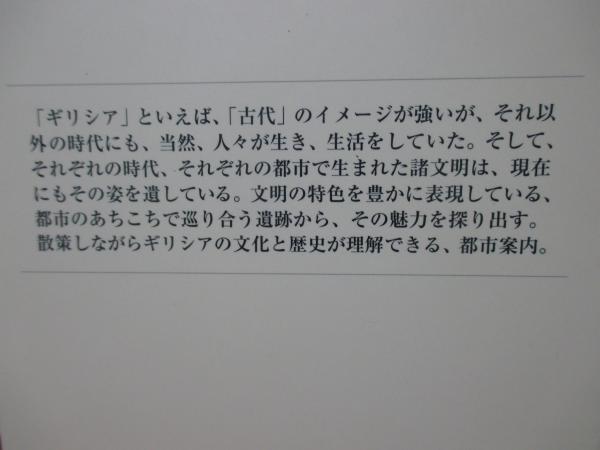 「ギリシア」といえば、「古代」のイメージが強いが、それ以
外の時代にも、当然、人々が生き、生活をしていた。そして、
それぞれの時代、それぞれの都市で生まれた諸文明は、現在
にもその姿を遺している。文明の特色を豊かに表現している、
都市のあちこちで巡り合う遺跡から、その魅力を探り出す。
散策しながらギリシアの文化と歴史が理解できる、都市案内。